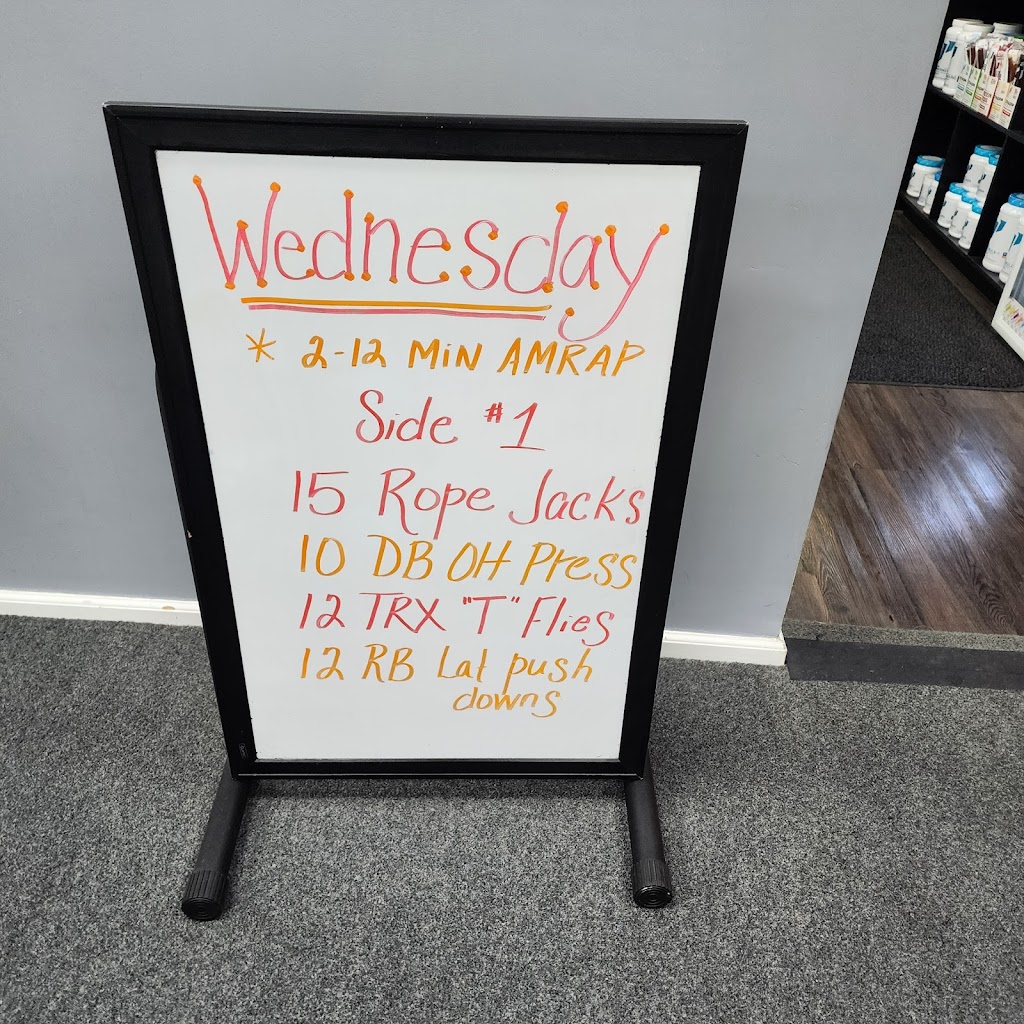 Wednesday
* 2-12 MiN AMRAP
Side #1
15 Rope Jacks
10 DB OH Press
12 TRX "T" Flies
12 RB Lat push
downs